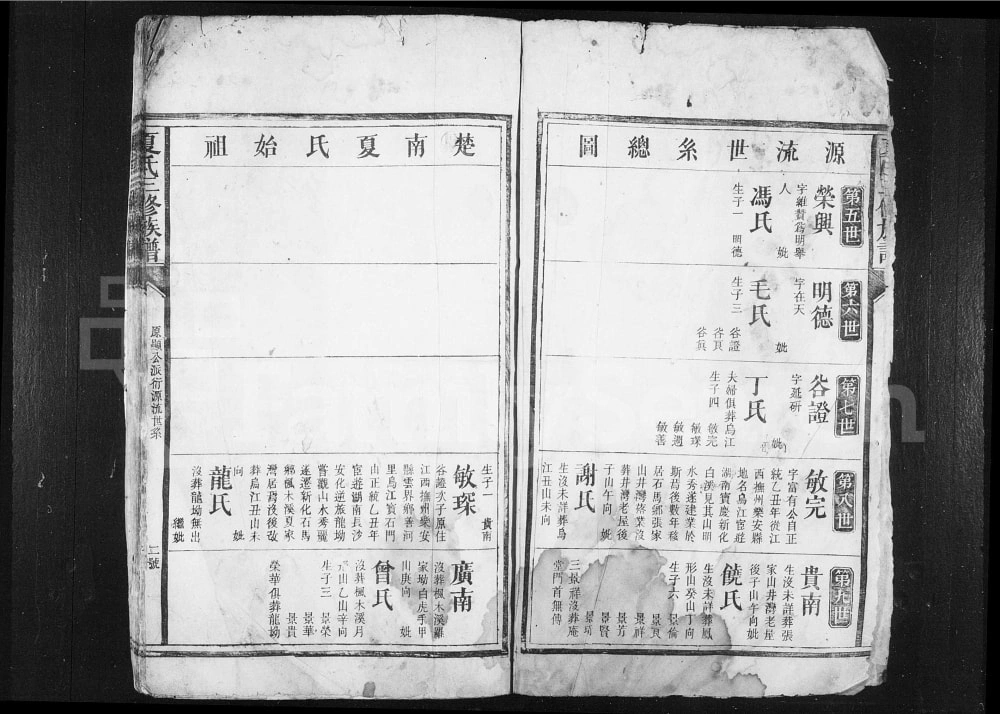 源流世系總圖
第五世
榮興
字維賢爲明舉
人
妣
馮氏
生子一
明德
第六世
明德
字在天
妣
毛氏
生子三
谷證
谷貝
谷眞
第七世
谷證
字延研
妣
丁氏
夫婦俱葬烏江
生子四
敏完
敏琛
敏週
敏善
第八世
敏完
字富有公自正
統乙丑年從江
西撫州樂安縣
地名烏江宦遊
湖南寶慶新化
白溪見其山明
水秀遂建業於
斯焉後數年移
居石馬鄉張家
山井灣修業沒
葬井灣老屋後
子山午向
妣
謝氏
生沒未詳葬烏
江丑山未向
第九世
貴南
生沒未詳葬張
家山井灣老屋
後子山午向妣
饒氏
生沒未詳葬鳳
形山癸山丁向
生子六
景倫
景良
景祥
景芳
景賢
景琦
三景祥沒葬庵
堂門首無傳
楚南夏氏始祖
生子一
貴南
敏琛
谷證次子原住
江西撫州樂安
縣雲界鄉善河
里烏江寶石門
山正統乙丑年
宦遊湖南長沙
安化逆旅龍坳
嘗觀山水秀麗
遂遷新化石馬
鄉楓木溪夏家
灣居焉沒後改
葬烏江丑山未
向
妣
龍氏
沒葬龍坳無出
繼妣
廣南
沒葬楓木溪羅
家坳白虎手甲
山庚向
妣
曾氏
沒葬楓木溪月
山乙山辛向
生子三
景榮
景華
景貴
榮華俱葬龍坳
夏氏三修族譜
原顯公派衍源流世系
二號